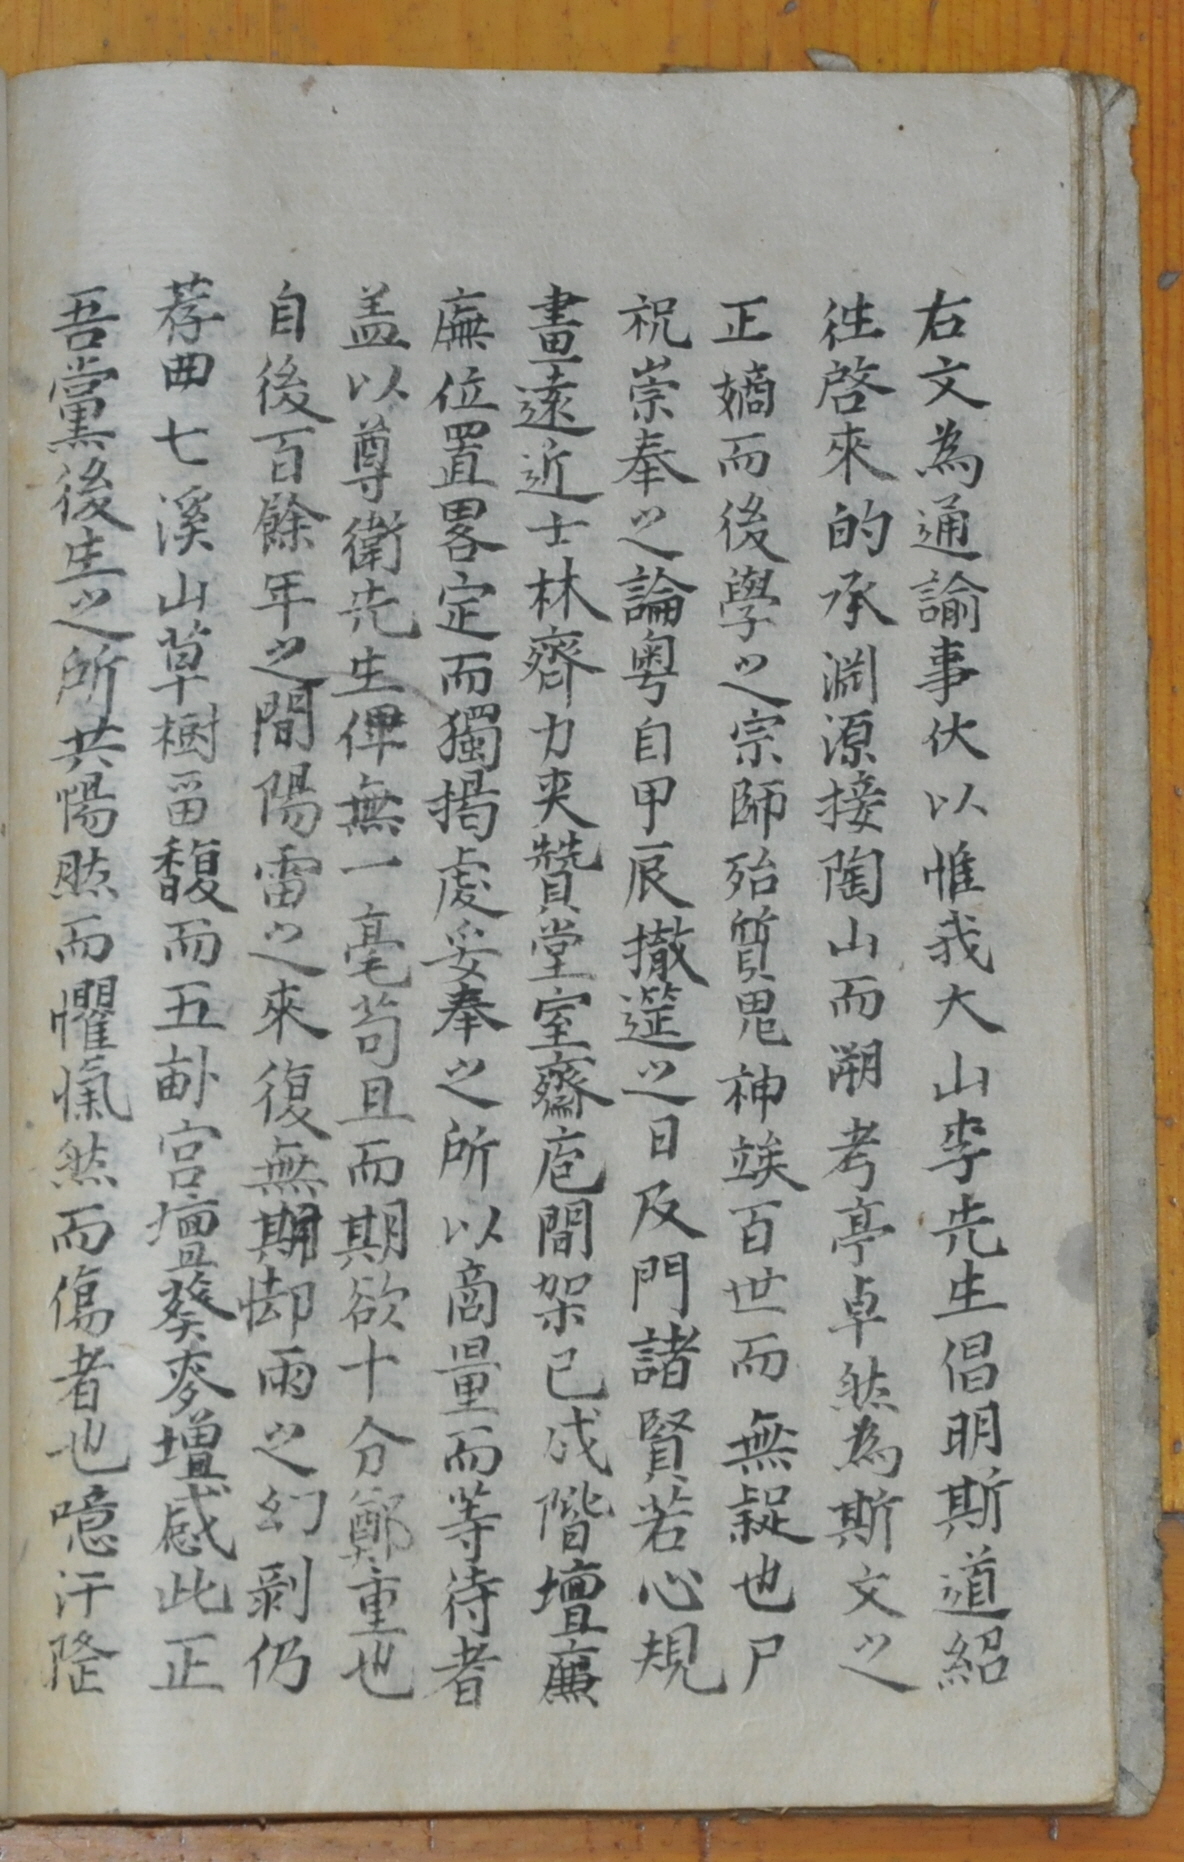 右文為通諭事伏以惟我大山李先生倡明斯道紹
徃啓來的承淵源接陶山而溯考亭卓然為斯文之
正嫡而後學之宗師殆質鬼神竢百世而無疑也尸
祝崇奉之論粤自甲辰撤筵之日及門諸賢若心規
畫遠近士林齊力夾贊堂室齋庖間架已成階壇廉
廡位置畧定而獨揭虔妥奉之所以商量而等待者
盖以尊衛先生俾無一毫苟且而期欲十分鄭重也
自後百餘年之間陽雷之來復無期却雨之幻剥仍
荐曲七溪山草樹畱馥而五畝宫壇葵麥增感此正
吾黨後生之所共惕然而懼愾然而傷者也噫汙隆